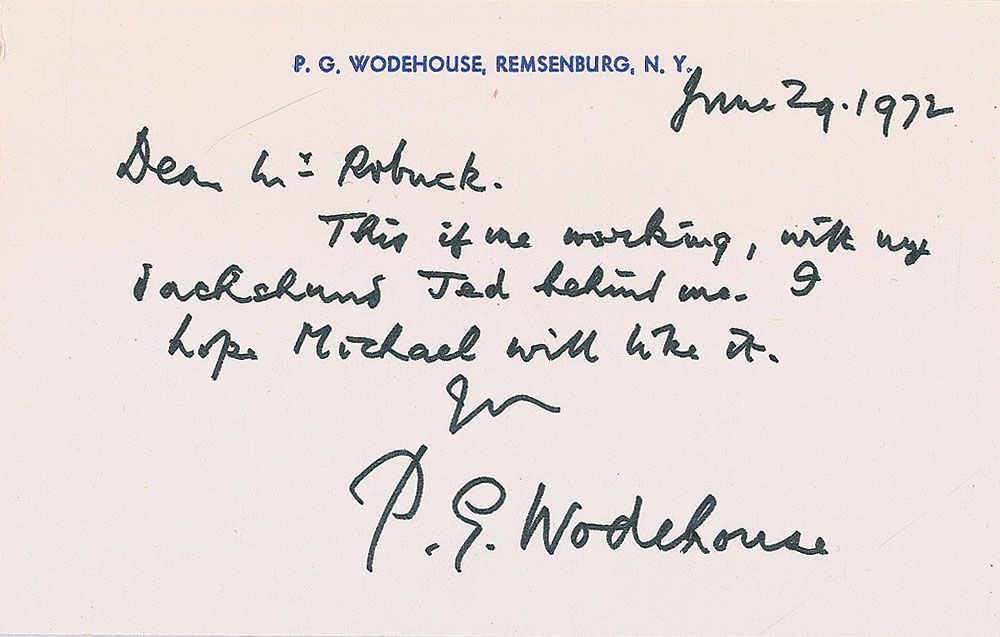 P. G. WODEHOUSE, REMSENBURG, N. Y.
June 29. 1972
Dear Mr Robuck.
This if me working, with my
dachshund Jed behind me. I
hope Michael will like it.
Yrs
P. G. Wodehouse